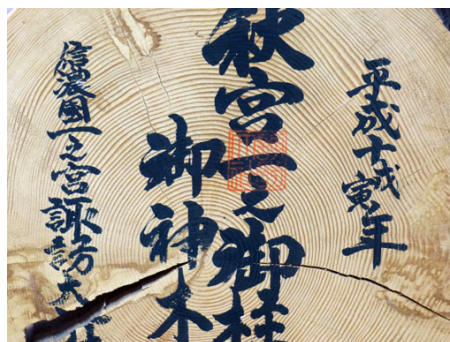 平成十戊寅年
秋宮一之御柱
御神木
信濃國一之宮諏訪大社